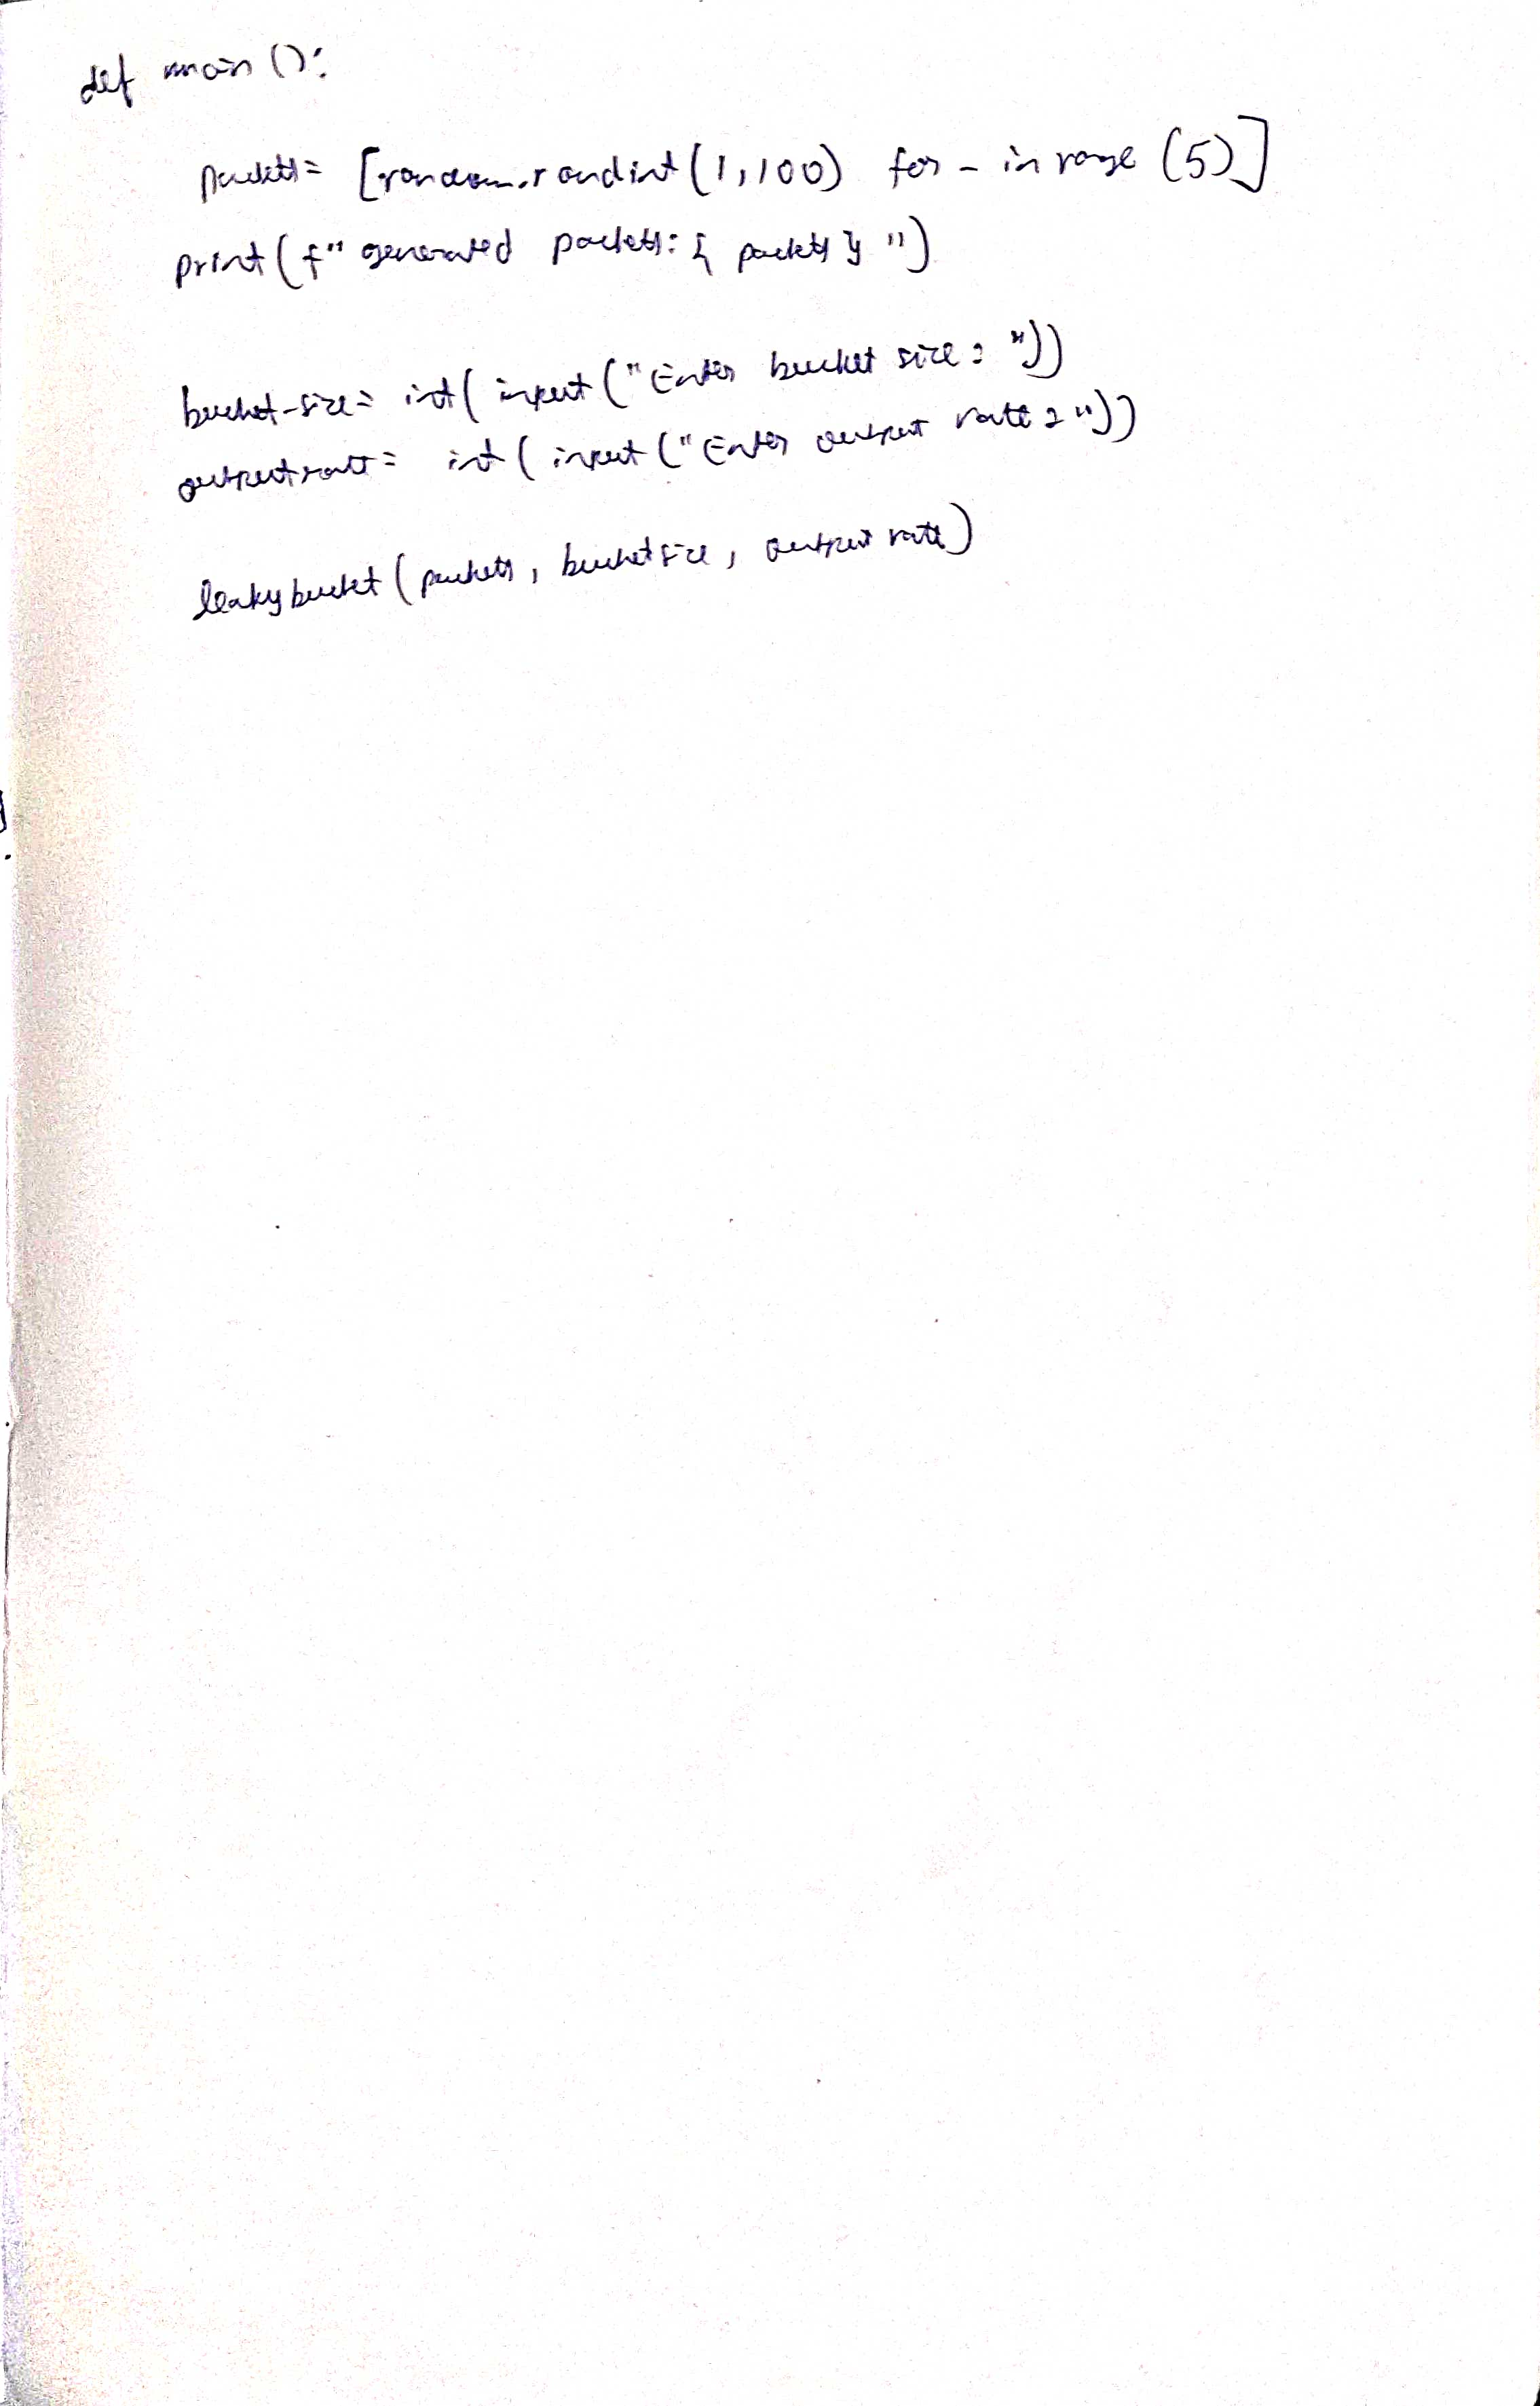 def main():
packets = [random.randint(1,100) for _ in range (5)]
print(f" generated packets: { packets } ")
bucket_size = int( input ("Enter bucket size : "))
outputrate = int ( input ("Enter output rate : "))
leakybucket ( packets , bucketsize , output rate )